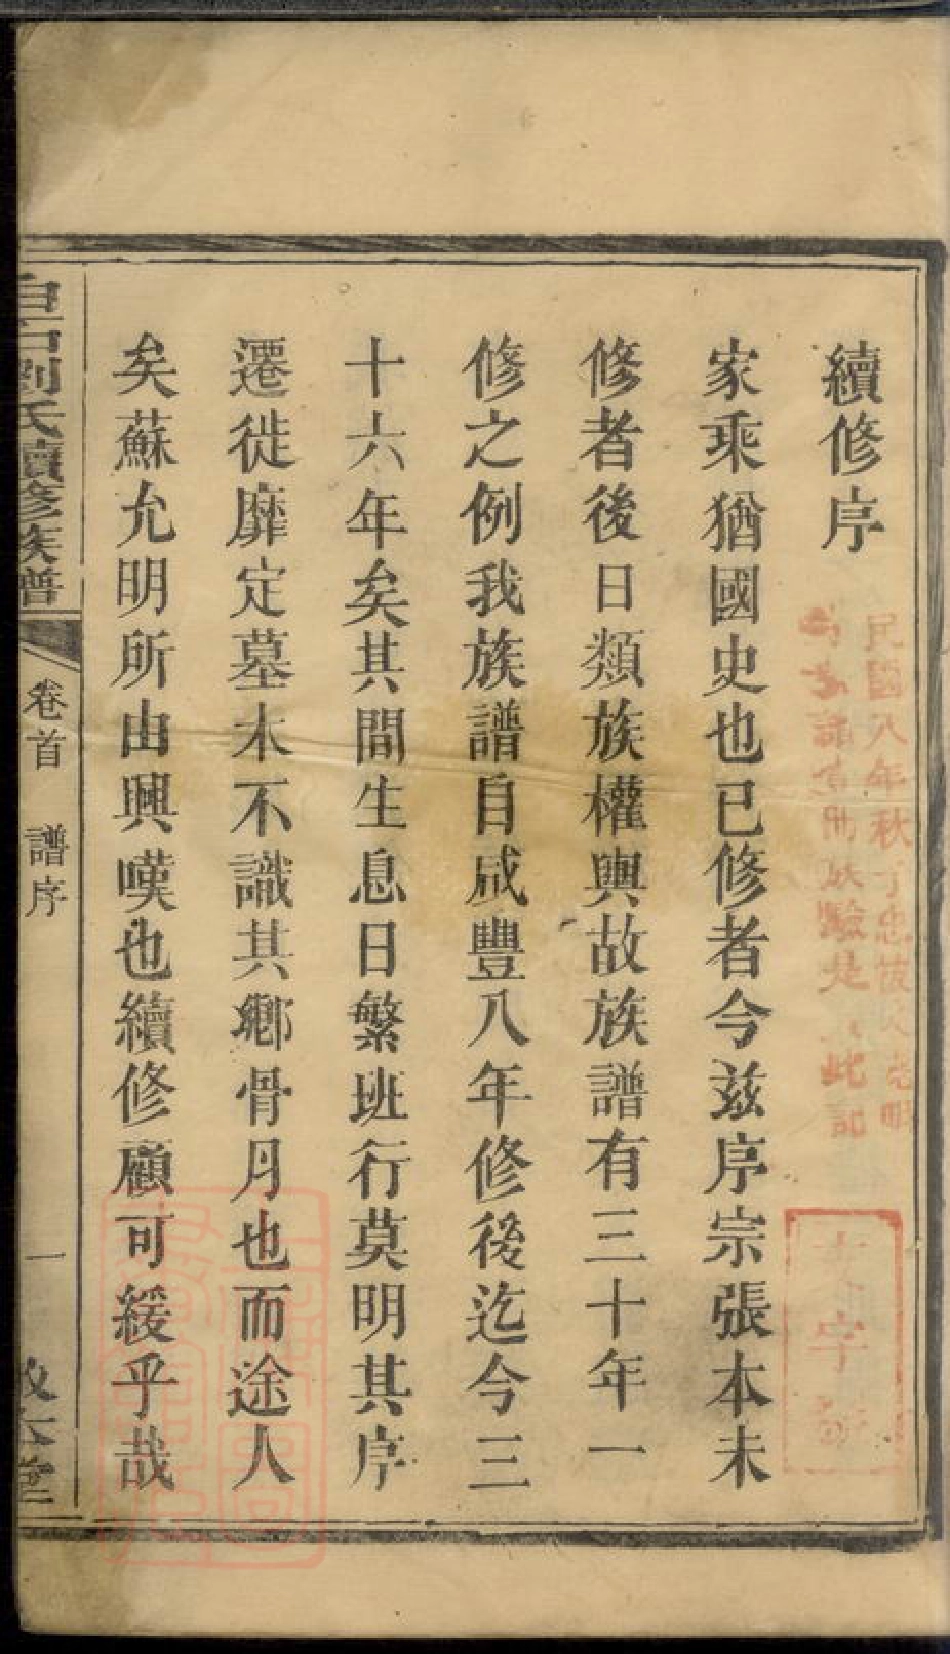 續修序
家乘猶國史也已修者今茲序宗張本未
修者後日類族權輿故族譜有三十年一
修之例我族譜自咸豐八年修後迄今三
十六年矣其間生息日繁班行莫明其序
遷徙靡定墓木不識其鄉骨月也而途人
矣蘇允明所由興嘆也續修顧可緩乎哉
白石劉氏續修族譜
卷首 譜序
一
民國八年秋
此記
字號